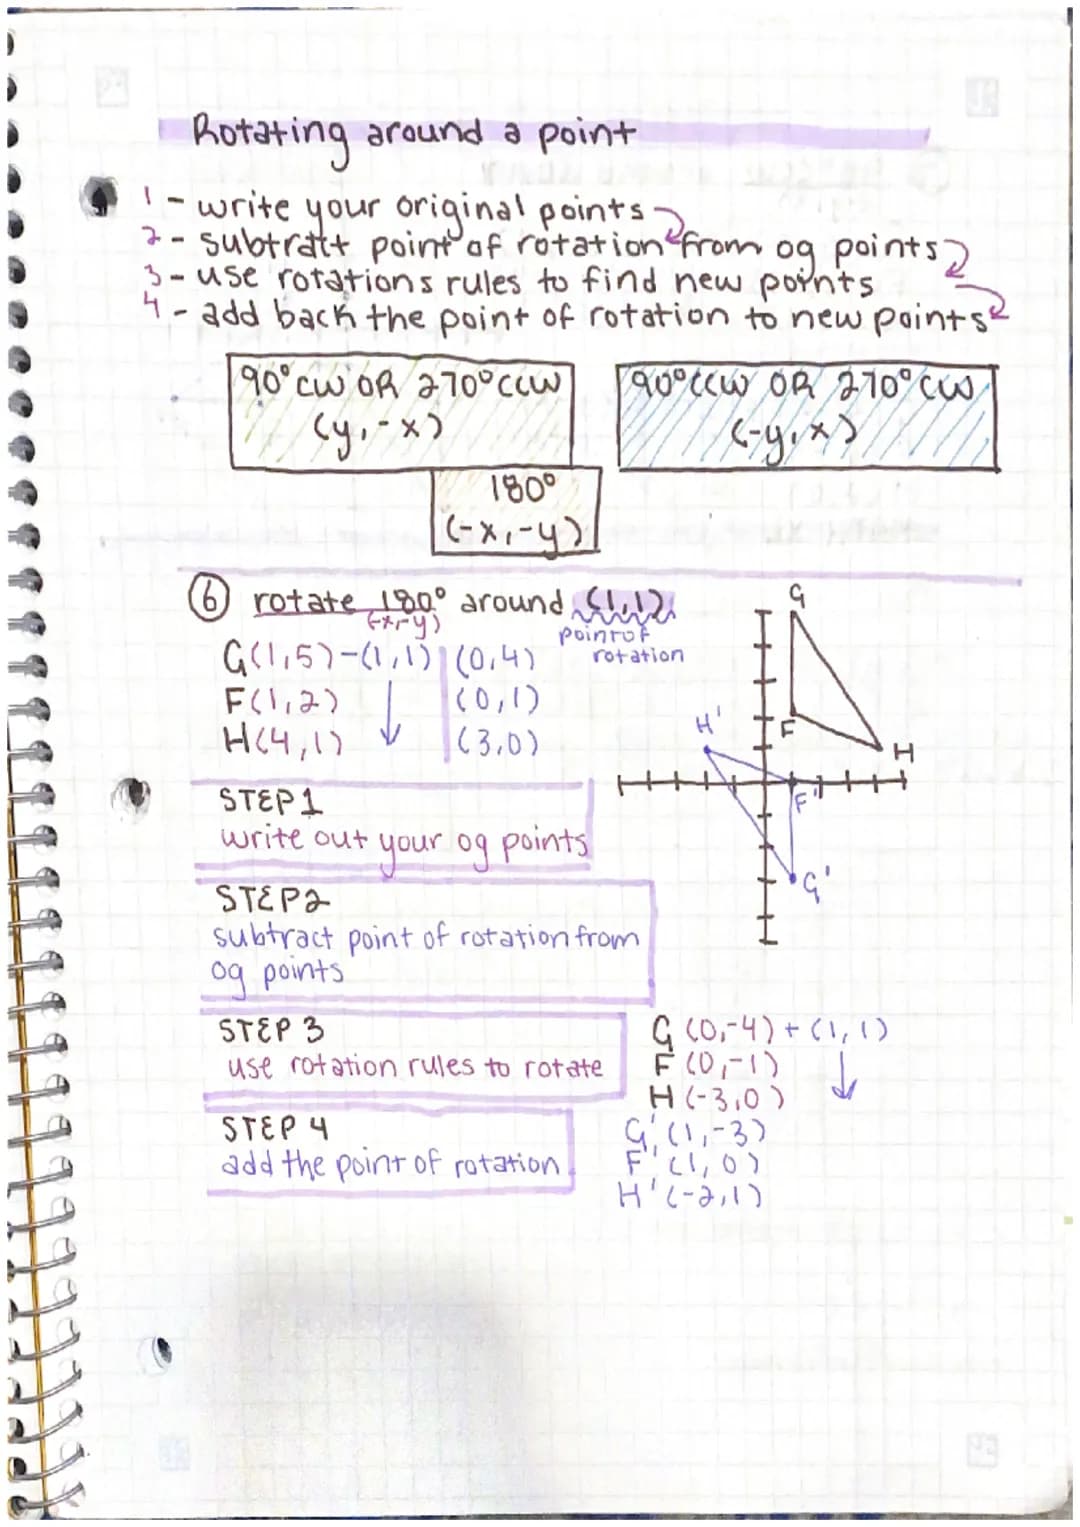 Rotating around a point
1 - write your original points
2 - subtratt point of rotation from og points
3 - use rotations rules to find new points
4 - add back the point of rotation to new points
90° CW OR 270° CCW
(y, -x)
90° CCW OR 270° CW
(-y, x)
180°
(-x, -y)
6 rotate 180° around (1,1)
(-x,-y)
point of
rotation
G(1,5)-(1,1) (0,4)
F(1,2) (0,1)
H(4,1) (3,0)
G
F
H
H'
F'
G'
STEP 1
write out your og points
STEP 2
subtract point of rotation from
og points
STEP 3
use rotation rules to rotate
G (0,-4) + (1,1)
F (0,-1)
H (-3,0)
STEP 4
add the point of rotation
G' (1,-3)
F' (1,0)
H' (-2,1)